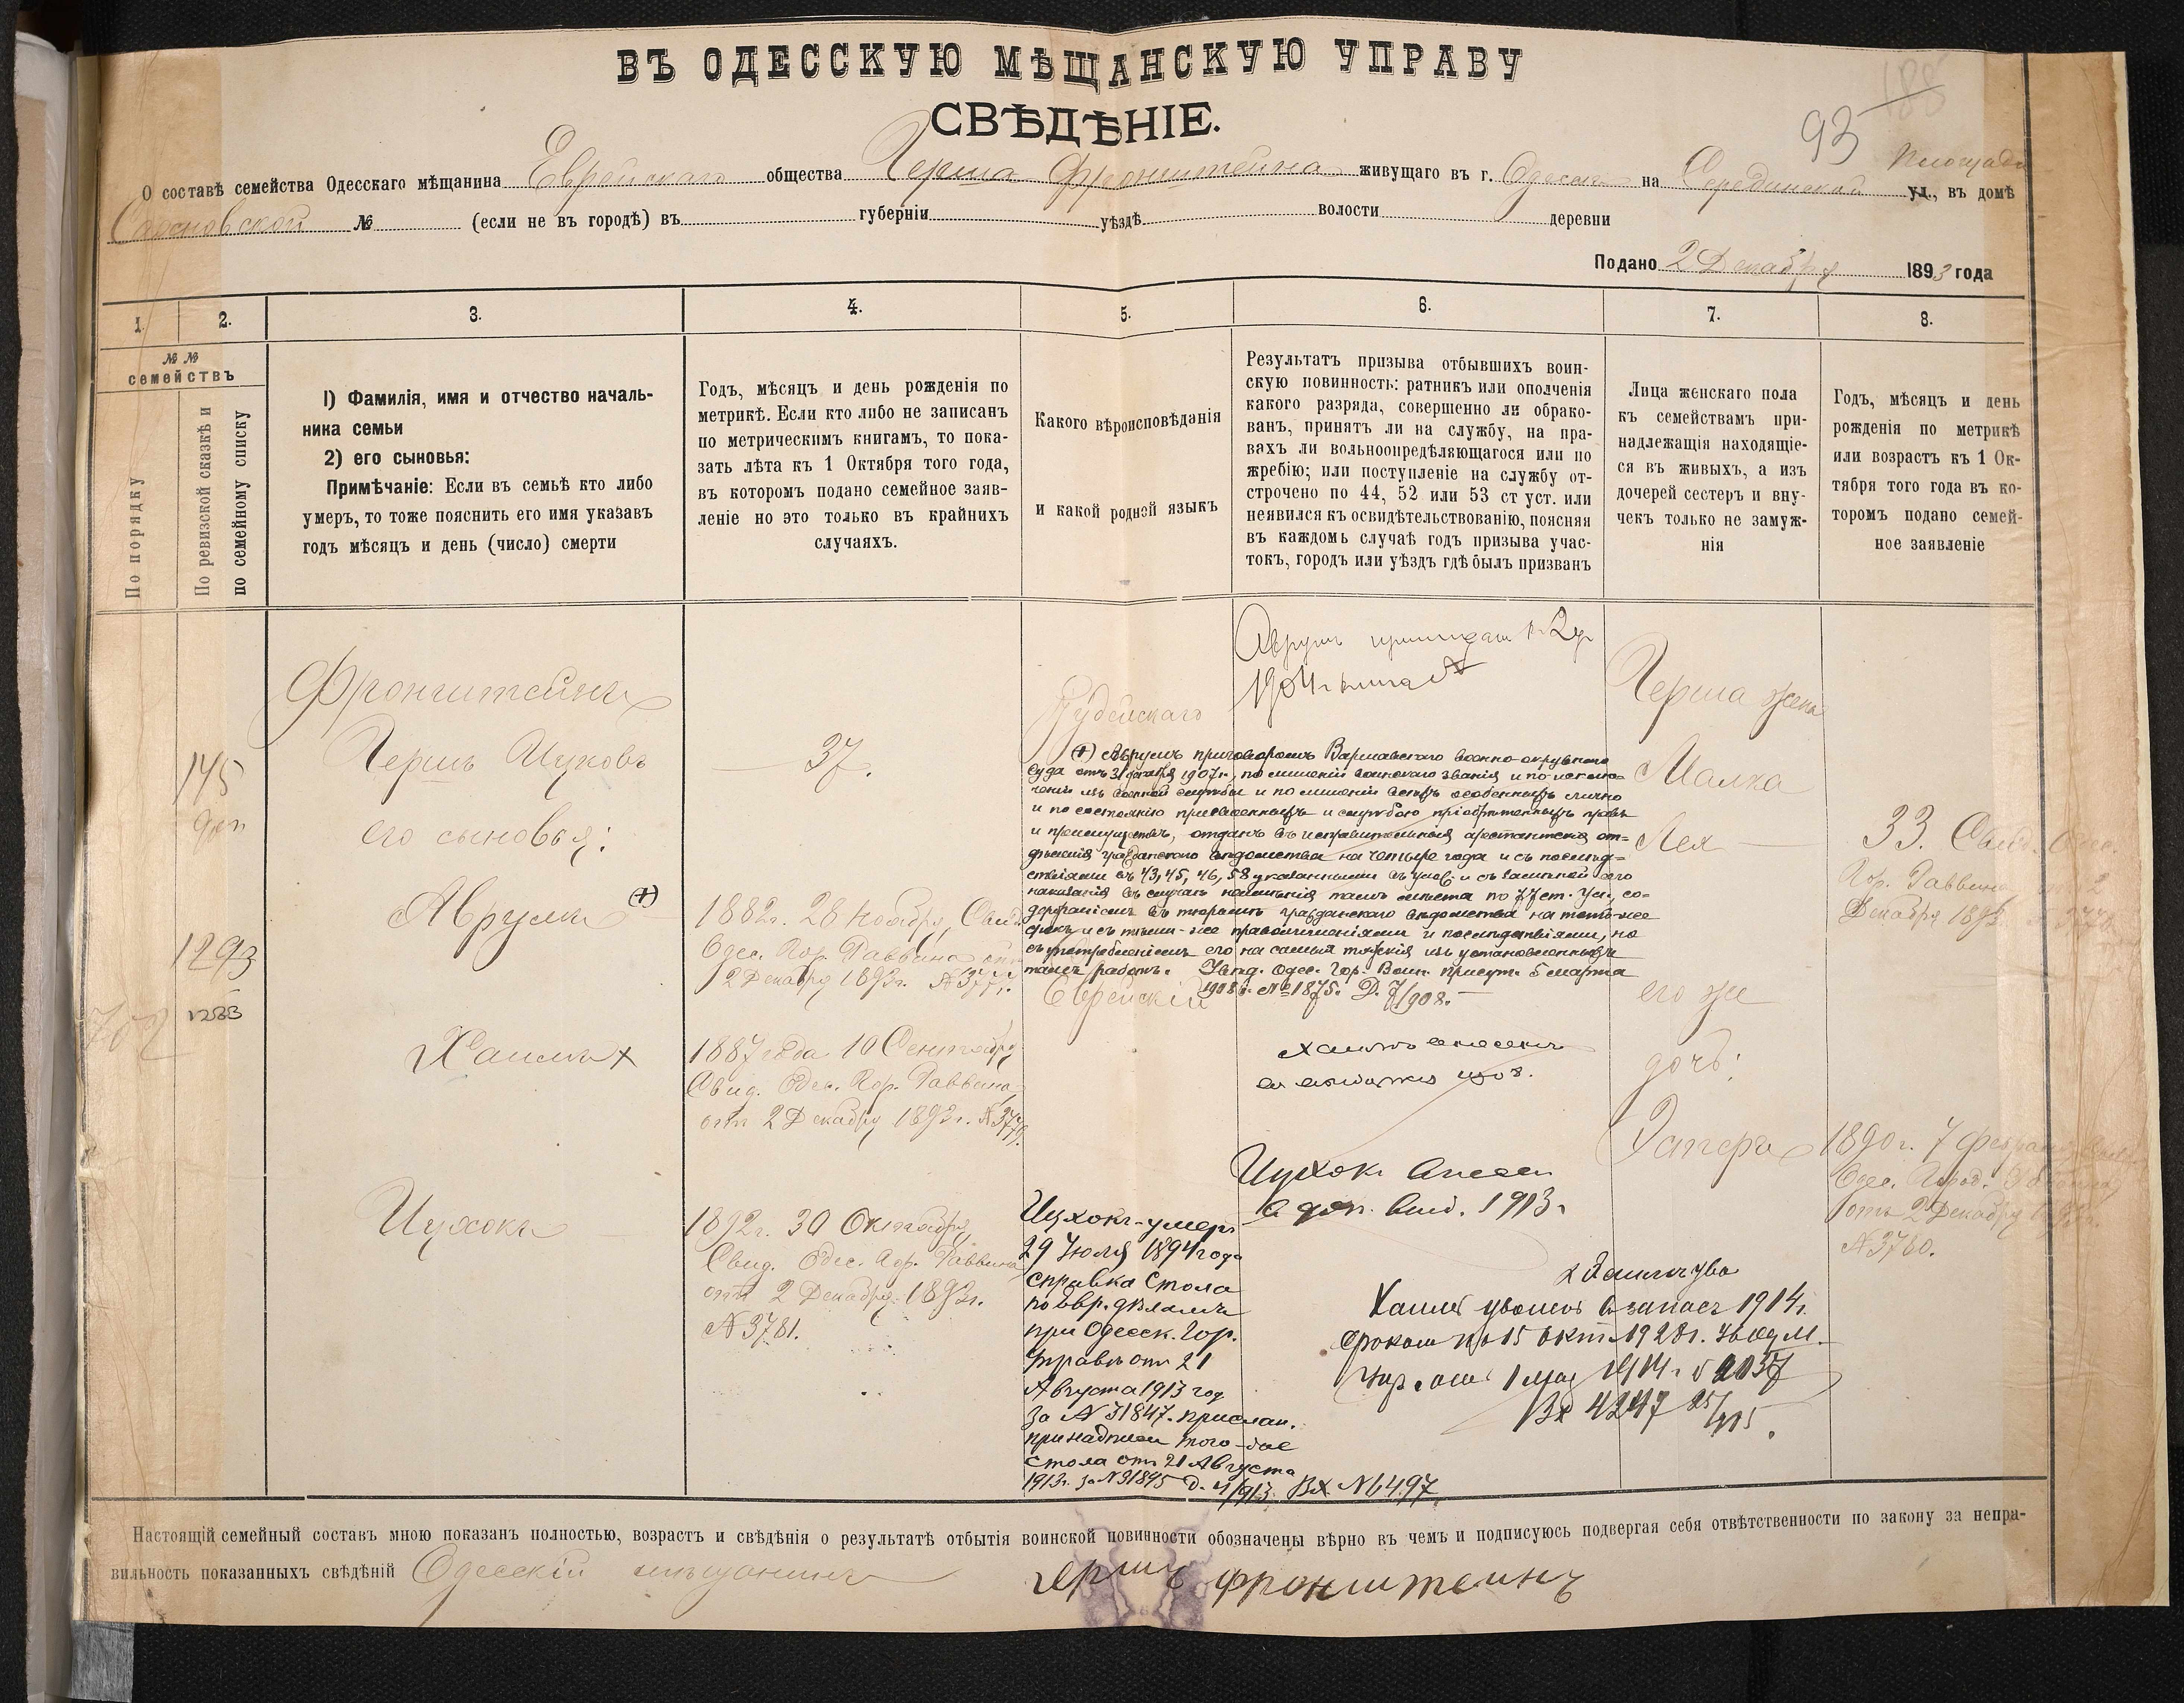 ВЪ ОДЕССКУЮ МѢЩАНСКУЮ УПРАВУ
СВѢДѢНІЕ.
93
188
О составѣ семейства Одесскаго мѣщанина Еврейскаго общества Герша Фронштейна живущаго въ г. Одессѣ на Серединской площади ул., въ домѣ
№ (если не въ городѣ) въ губерніи уѣздѣ волости деревни
Подано 2 Декабря 1893 года
1. 2. 3. 4. 5. 6. 7. 8.
№ № семействъ
По порядку
По ревизской сказкѣ и по семейному списку
1) Фамилія, имя и отчество началь-
ника семьи
2) его сыновья:
Примѣчаніе: Если въ семьѣ кто либо
умеръ, то тоже пояснить его имя указавъ
годъ мѣсяцъ и день (число) смерти
Годъ, мѣсяцъ и день рожденія по
метрикѣ. Если кто либо не записанъ
по метрическимъ книгамъ, то пока-
зать лѣта къ 1 Октября того года,
въ которомъ подано семейное заяв-
леніе но это только въ крайнихъ
случаяхъ.
Какого вѣроисповѣданія
и какой родной языкъ
Результатъ призыва отбывшихъ воин-
скую повинность: ратникъ или ополченія
какого разряда, совершенно ли обрако-
ванъ, принятъ ли на службу, на пра-
вахъ ли вольноопредѣляющагося или по
жребію; или поступленіе на службу от-
строчено по 44, 52 или 53 ст уст. или
неявился къ освидѣтельствованію, поясняя
въ каждомъ случаѣ годъ призыва учас-
токъ, городъ или уѣздъ гдѣ былъ призванъ
Лица женскаго пола
къ семействамъ при-
надлежащія находящіе-
ся въ живыхъ, а изъ
дочерей сестеръ и вну-
чекъ только не замуж-
нія
Годъ, мѣсяцъ и день
рожденія по метрикѣ
или возрастъ къ 1 Ок-
тября того года въ ко-
торомъ подано семей-
ное заявленіе
145
доп
1293
1233
702
Фронштейнъ
Гершъ Ицковъ
его сыновья:
Аврумъ (+)
Хаимъ +
Ицхокъ
37.
1882г. 28 Ноября, Свид.
Одес. Гор. Раввина от
2 Декабря 1893г. №
1887 года 10 Сентября
Свид. Одес. Гор. Раввина
отъ 2 Декабря 1893г. № 3779.
1892г. 30 Октября
Свид. Одес. Гор. Раввина
отъ 2 Декабря 1893г.
№ 3781.
Іудейскаго
Еврейскій
Аврумъ
1904г
(+) Аврумъ приговоромъ Варшавскаго военно-окружнаго
суда отъ 31 октября 1907г., по лишеніи воинскаго званія и по исклю-
ченіи изъ военной службы и по лишеніи всѣхъ особенныхъ лично
и по состоянію присвоенныхъ и службою пріобрѣтенныхъ правъ
и преимуществъ, отданъ въ исправительныя арестантскія от-
дѣленія гражданскаго вѣдомства на четыре года и съ послѣд-
ствіями въ 43, 45, 46, 58 указанными въ Улож. и съ замѣной его
наказанія въ случаѣ неимѣнія тамъ мѣста по 77 ст. Ул., со-
держаніемъ въ тюрьмѣ гражданскаго вѣдомства на тотъ-же
срокъ и съ тѣми-же праволишеніями и послѣдствіями, но
съ употребленіемъ его на самыя тяжкія изъ установленныхъ
тамъ работъ. Увѣд. Одес. Гор. Воин. присут. 5 марта
1908г. № 1875. Д. 7/908.
Хаимъ внесенъ
Ицхокъ внесен
в доп. 1913г
Ицхокъ-умеръ
29 Іюля 1894 года
справка Стола
по евр. дѣламъ
при Одесск. Гор.
Управѣ отъ 21
Августа 1913 год
за № 31847. прислан.
того-же
стола отъ 21 Августа
1913г. за № 31895 Д. 4/913. Вх. № 6497.
Хаимъ уволенъ в запасъ 1914г.
срокомъ по 15 окт. 1928г.
1 мая 1914г.
Вх 4247
Герша жена
Малка
Лея
его же
дочь:
Эстера
33. Свид. Одес.
Гор. Раввина
Декабря 1893
1890г. 7 Февраля
Одес. Город. Раввина
отъ 2 Декабря
№ 3780.
Настоящій семейный составъ мною показанъ полностью, возрастъ и свѣдѣнія о результатѣ отбытія воинской повинности обозначены вѣрно въ чемъ и подписуюсь подвергая себя отвѣтственности по закону за непра-
вильность показанныхъ свѣдѣній Одесскій мѣщанинъ Гершъ Фронштейнъ